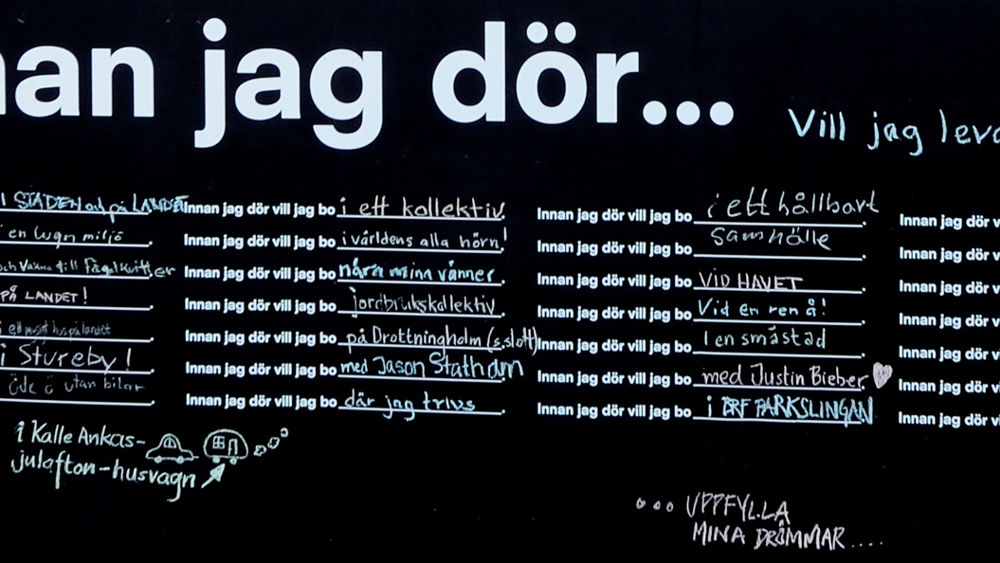 nan jag dör...
Vill jag leva
I STADEN och på LANDET
i en lugn miljö
och vakna till fågelkvitter
PÅ LANDET!
i ett hus på landet
i Stureby!
Öde ö utan bilar
i Kalle Ankas-
julafton-husvagn
Innan jag dör vill jag bo i ett kollektiv.
Innan jag dör vill jag bo i världens alla hörn!
Innan jag dör vill jag bo nära mina vänner.
Innan jag dör vill jag bo jordbrukskollektiv
Innan jag dör vill jag bo på Drottningholm (s.slott)
Innan jag dör vill jag bo med Jason Statham
Innan jag dör vill jag bo där jag trivs
Innan jag dör vill jag bo i ett hållbart
Innan jag dör vill jag bo samhälle
Innan jag dör vill jag bo VID HAVET
Innan jag dör vill jag bo Vid en ren å!
Innan jag dör vill jag bo I en småstad
Innan jag dör vill jag bo med Justin Bieber
Innan jag dör vill jag bo i BRF PARKSLINGAN
Innan jag dör v
Innan jag dör v
Innan jag dör v
Innan jag dör v
Innan jag dör v
Innan jag dör v
Innan jag dör vi
... UPPFYLLA
MINA DRÖMMAR....